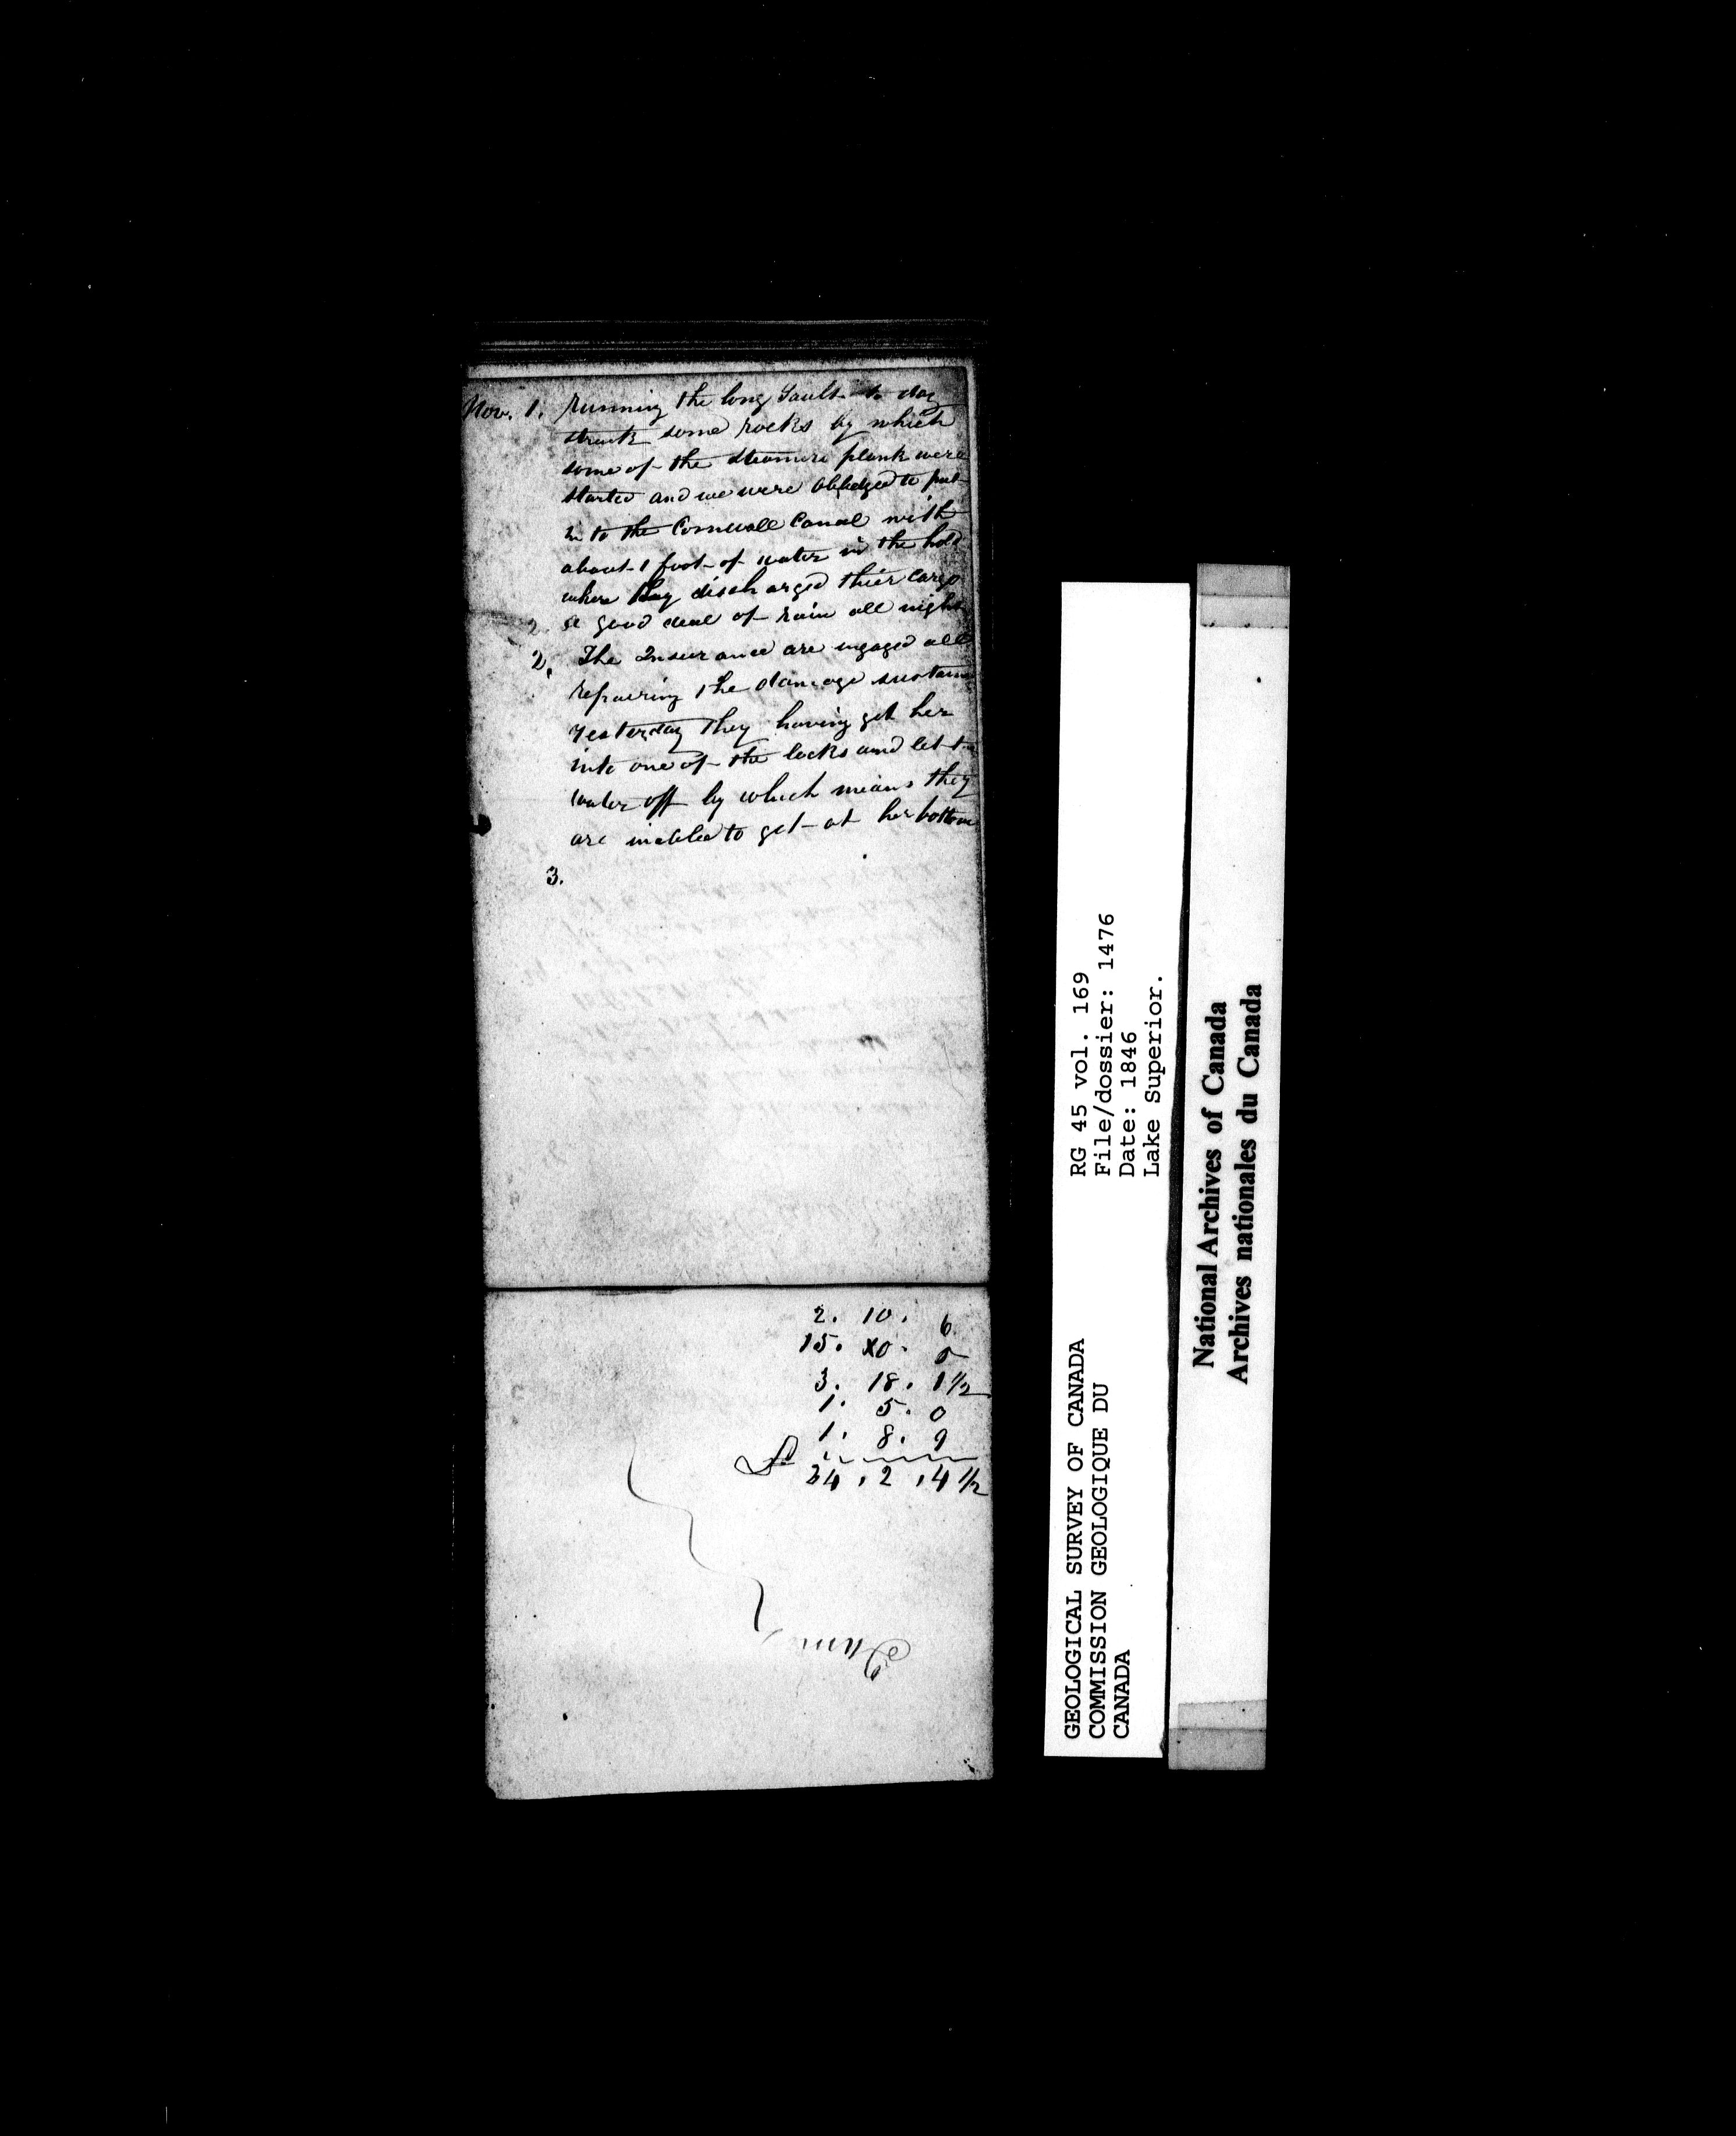 Nov. 1. Running the long Sault to day
struck some rocks by which
some of the steamers plank were
started and we were obliedged to put
in to the Cornwall Canal with
about 1 foot of water in the hold
where they discharged thier cargo
2 a good deal of rain all night
2. The Insurance are ingaged all
repairing the damage sustain
yesterday they having got her
into one of the locks and let the
water off by which means they
are inabled to get at her bottom
3.
2. 10. 6
15. X0. 0
3. 18. 1 1/2
1. 5. 0
1. 8. 9
£ 24. 2. 4 1/2
RG 45 vol. 169
File/dossier: 1476
Date: 1846
Lake Superior.
GEOLOGICAL SURVEY OF CANADA
COMMISSION GEOLOGIQUE DU
CANADA
National Archives of Canada
Archives nationales du Canada